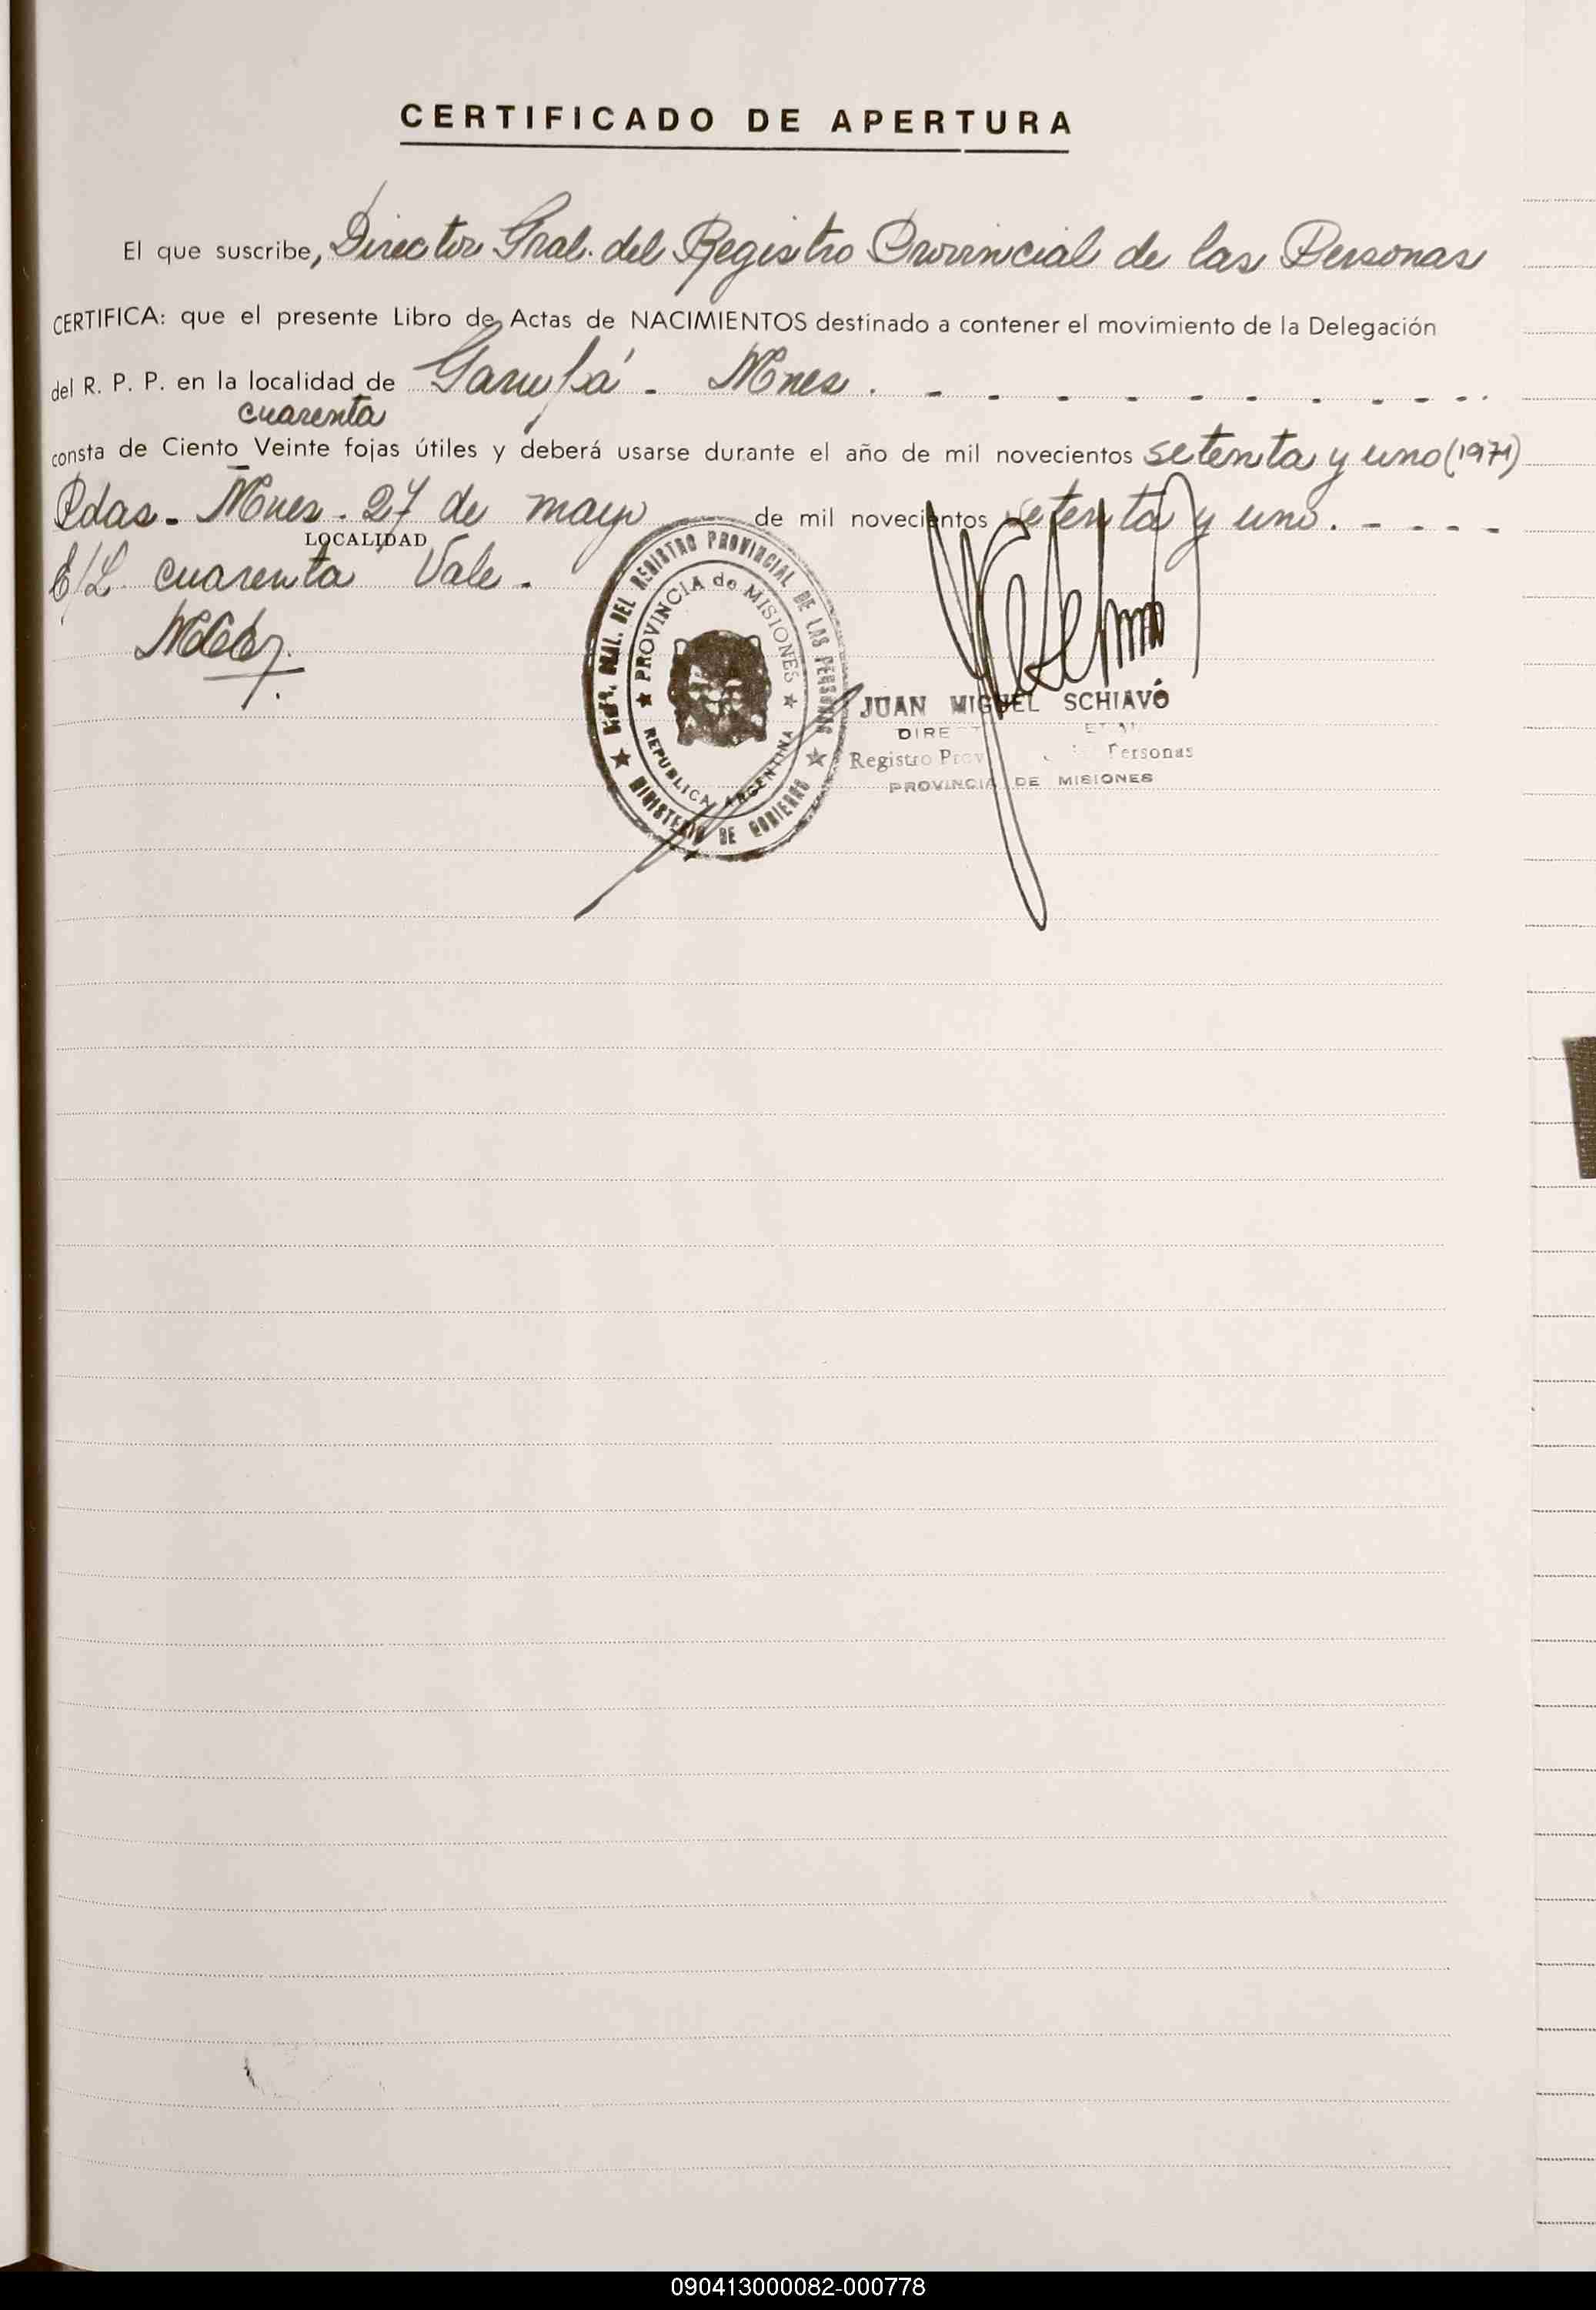 CERTIFICADO DE APERTURA
El que suscribe, Director Gral. del Registro Provincial de las Personas
CERTIFICA: que el presente Libro de Actas de NACIMIENTOS destinado a contener el movimiento de la Delegación
del R. P. P. en la localidad de Garupá - Mnes. - - - - - - - - - -
cuarenta
consta de Ciento Veinte fojas útiles y deberá usarse durante el año de mil novecientos setenta y uno (1971)
Pdas - Mnes - 27 de mayo de mil novecientos setenta y uno. - - - -
LOCALIDAD
E/L cuarenta Vale.
GRAL. DEL REGISTRO PROVINCIAL DE LAS PERSONAS
PROVINCIA de MISIONES
REPUBLICA ARGENTINA
MINISTERIO DE GOBIERNO
JUAN MIGUEL SCHIAVÓ
DIRE
Registro Prov Personas
PROVINCIA DE MISIONES
090413000082-000778